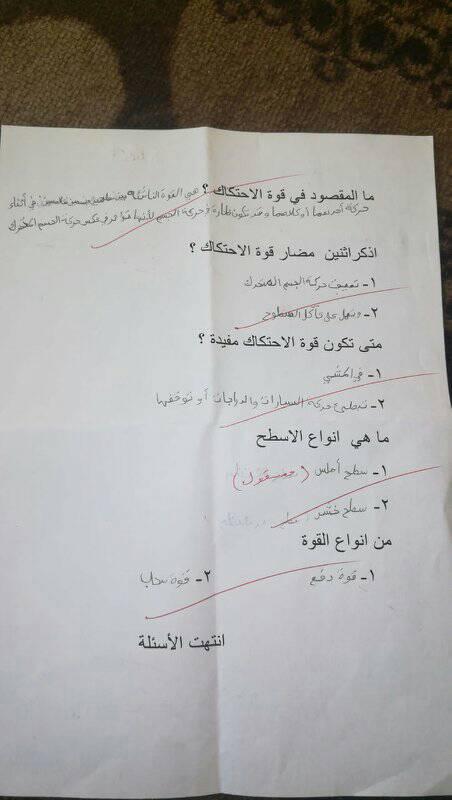 ما المقصود في قوة الاحتكاك ؟ هي القوة الناشئة بين سطحين متلامسين في أثناء
حركة أحدهما أو كلاهما وقد تكون ضارة في حركة الجسم لأنها تؤثر في عكس حركة الجسم المتحرك
اذكر اثنين مضار قوة الاحتكاك ؟
١- تعيق حركة الجسم المتحرك
٢- وتعمل على تآكل السطوح
متى تكون قوة الاحتكاك مفيدة ؟
١- في المشي
٢- تبطئ حركة السيارات والدراجات أو توقفها
ما هي انواع الاسطح
١- سطح أملس (مصقول)
٢- سطح خشن
من انواع القوة
١- قوة دفع ٢- قوة سحب
انتهت الأسئلة